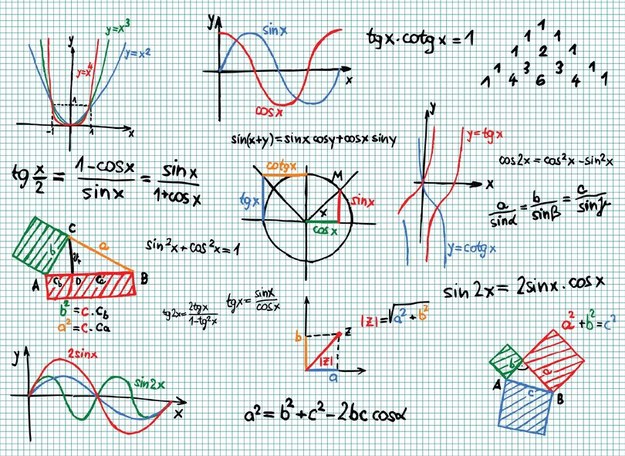 y
y=x³
y=x²
y=x⁴
1
-1
1
x
y
sinx
cosx
x
tgx·cotgx=1
1
1 1
1 2 1
1 3 3 1
1 4 6 4 1
sin(x+y)=sinx cosy+cosx siny
tg x/2 = 1-cosx/sinx = sinx/1+cosx
cotgx
M
tgx
x
sinx
cosx
y
y=tgx
x
y=cotgx
cos2x=cos²x-sin²x
a/sinα = b/sinβ = a/sinγ
C
b
a
A
D
B
b²=c·c_b
a²=c·c_a
sin²x+cos²x=1
tg2x=2tgx/1-tg²x
tgx=sinx/cosx
b
z
|z|
a
|z|=√a²+b²
sin2x=2sinx·cosx
a²+b²=c²
b
a
A
c
B
y
2sinx
sin2x
x
a²=b²+c²-2bc cosα